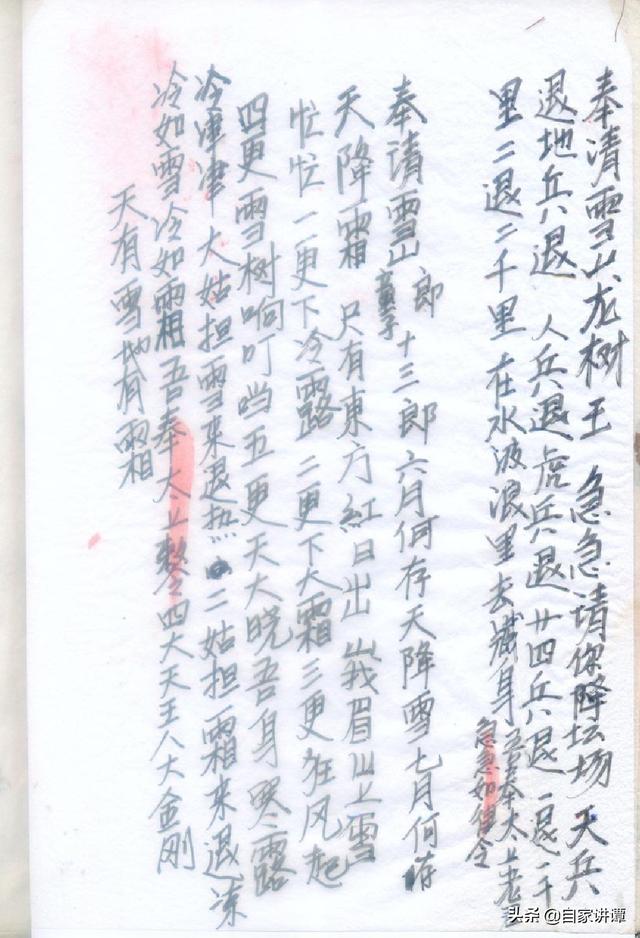 奉请雪山龙树王 急急请你降坛场 天兵
退地兵退 人兵退虎兵退廿四兵退一退一千
里二退二千里在水波浪里去藏身吾奉太上老君
急急如律令
奉请雪山童子郎十三郎六月何存天降雪七月何存
天降霜 只有東方紅日出 山我眉山上雪
忙忙一更下冷露二更下大霜三更狂风起
四更雪树响叮当五更天大晓吾身寒露
冷津津大姑担雪来退热 二姑担霜来退冻
冷如雪冷如霜吾奉太上敕令四大天王八大金刚
天有雪地有霜
头条 @自家讲谭